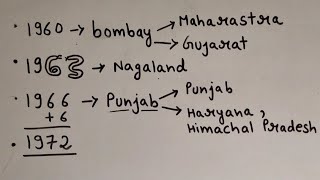 • 1960 → bombay → Maharastra
→ Gujarat
• 1963 → Nagaland
• 1966 → Punjab → Punjab
+ 6 → Haryana,
Himachal Pradesh
• 1972